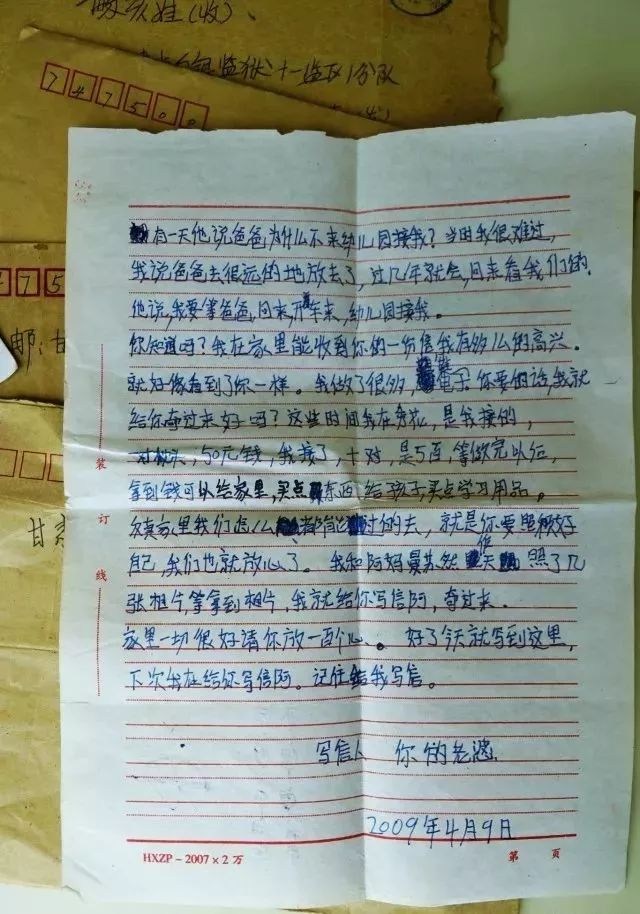 (收)、
监狱十一监区1分队
747500
有一天他说爸爸为什么不来幼儿园接我？当时我很难过，
我说爸爸去很远的地放去了，过几年就会回来看我们的。
他说，我要等爸爸，回来开车来，幼儿园接我。
你知道吗？我在家里能收到你的一份信我有多么的高兴。
就好像看到了你一样。我做了很多，电宝你要的话，我就
给你寄过来好吗？这些时间我在秀花，是我接的，
一对枕头，50元钱，我接了，十对，是5百，等做完以后，
拿到钱可以给家里，买点东西给孩子，买点学习用品。
家里我们怎么都能过的去，就是你要照顾好
自己，我们也就放心了。我和阿妈曼苏然昨天照了几
张相片，等拿到相片，我就给你写信阿，寄过来。
家里一切很好请你放一百个心。好了今天就写到这里，
下次我在给你写信阿。记住给我写信。
写信人 你的老婆
2009年4月9日
HXZP－2007×2万
第 页
装
订
线
475
邮：甘
甘肃